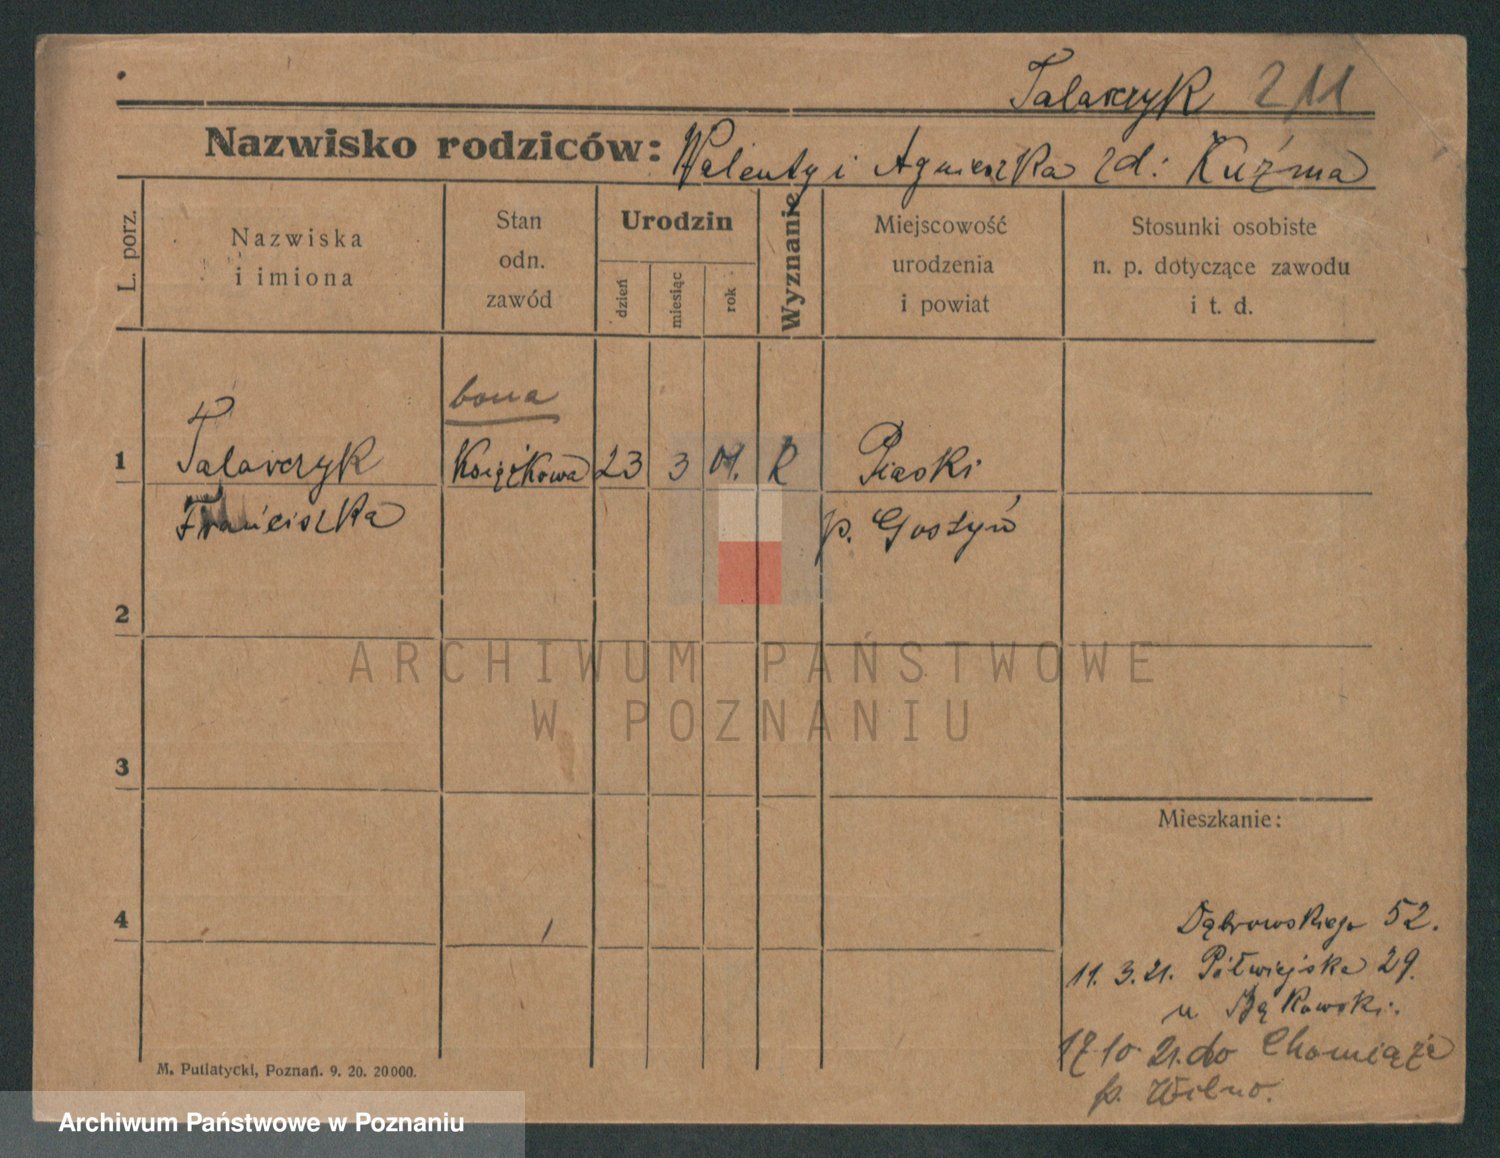 Talarczyk 211
Nazwisko rodziców: Walenty i Agnieszka zd: Kuźma
L. porz.
Nazwiska
i imiona
Stan
odn.
zawód
Urodzin
dzień
miesiąc
rok
Wyznanie
Miejscowość
urodzenia
i powiat
Stosunki osobiste
n. p. dotyczące zawodu
i t. d.
bona
1 Talarczyk Książkowa 23 3 01. R Piaski
Franciszka p. Gostyń
2
ARCHIWUM PAŃSTWOWE
W POZNANIU
3
Mieszkanie:
4
Dąbrowskiego 52.
11. 3. 21. Półwiejska 29.
u Bąkowski.
17 10 21. do
p.
M. Putiatycki, Poznań. 9. 20. 20000.
Archiwum Państwowe w Poznaniu